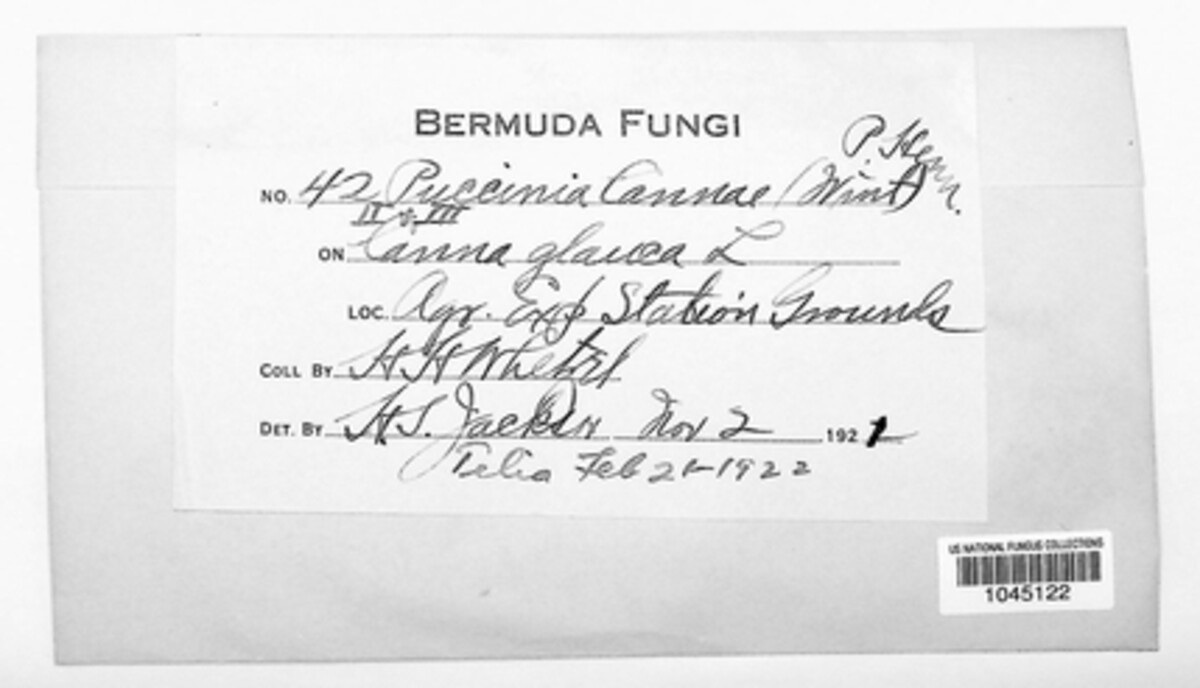 BERMUDA FUNGI
NO. 42 Puccinia Cannae (Wint) P. Henn.
II & III
ON Canna glauca L
LOC. Agr. Exp Station Grounds
COLL BY H H Whetzel
DET. BY H.S. Jackson Nov 2 1921
Telia Feb 21-1922
US NATIONAL FUNGUS COLLECTIONS
1045122